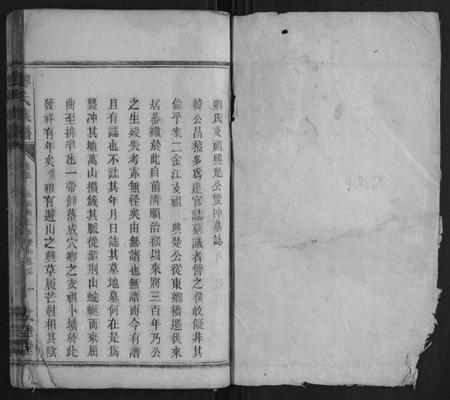 氏支祖興楚公雙冲墓誌
韓公昌黎多為達官誌墓識者譏之僕敢儗非其
倫乎柒二金江支祖 興楚公從東鄉橋遷徙來
居蕃衍於此自前清順治初以來將三百年乃公
之生歿失考亦無怪矣由無譜也無譜而今有譜
且有誌也不誌其年月日誌其墓地墓何在是為
雙冲其地萬山攢簇其脈從紫荊山蜿蜒而來屈
曲至排 一帶卸落成穴鄉之支祖卜壙於此
發祥有年矣 雅有遊山之興草履芒鞋相其陰
氏族譜